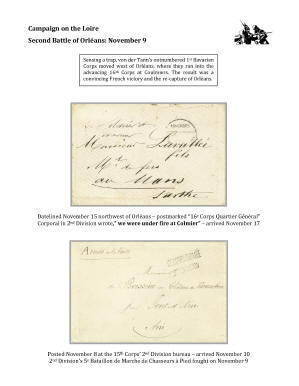 Campaign on the Loire
Second Battle of Orléans: November 9
Sensing a trap, von der Tann's outnumbered 1st Bavarian
Corps moved west of Orléans, where they ran into the
advancing 16th Corps at Coulmiers. The result was a
convincing French victory and the re-capture of Orléans.
Monsieur
fils
au Mans
Sarthe
Datelined November 15 northwest of Orléans – postmarked "16e Corps Quartier Général"
Corporal in 2nd Division wrote," we were under fire at Colmier" – arrived November 17
Armée de la Loire
Monsieur
par Pont d'Ain
Ain
Posted November 8 at the 15th Corps' 2nd Division bureau – arrived November 10
2nd Division's 5e Bataillon de Marche de Chasseurs à Pied fought on November 9